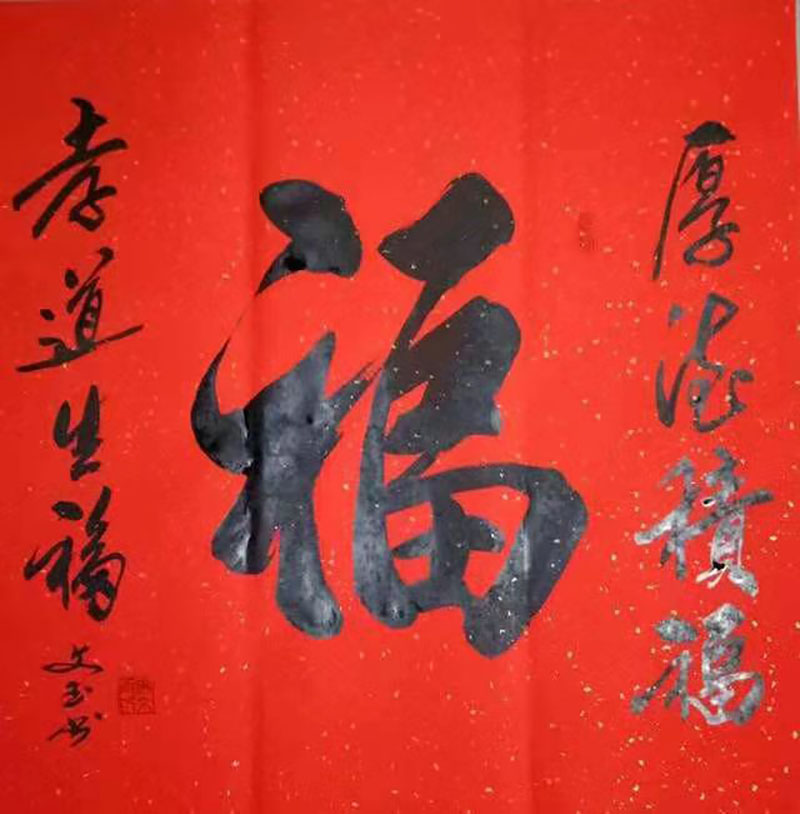 厚德积福
福
孝道生福
文玉书